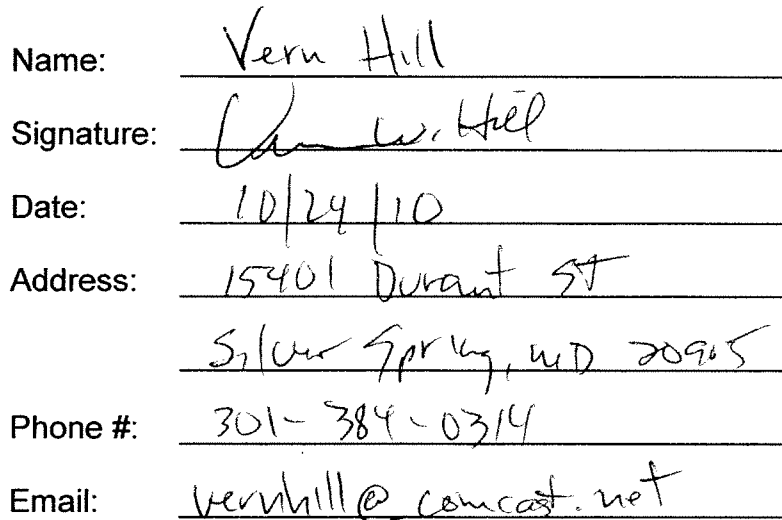 Name: Vern Hill
Signature: Vern W. Hill
Date: 10/24/10
Address: 15401 Durant St
Silver Spring, MD 20905
Phone #: 301-384-0314
Email: vernhill@comcast.net